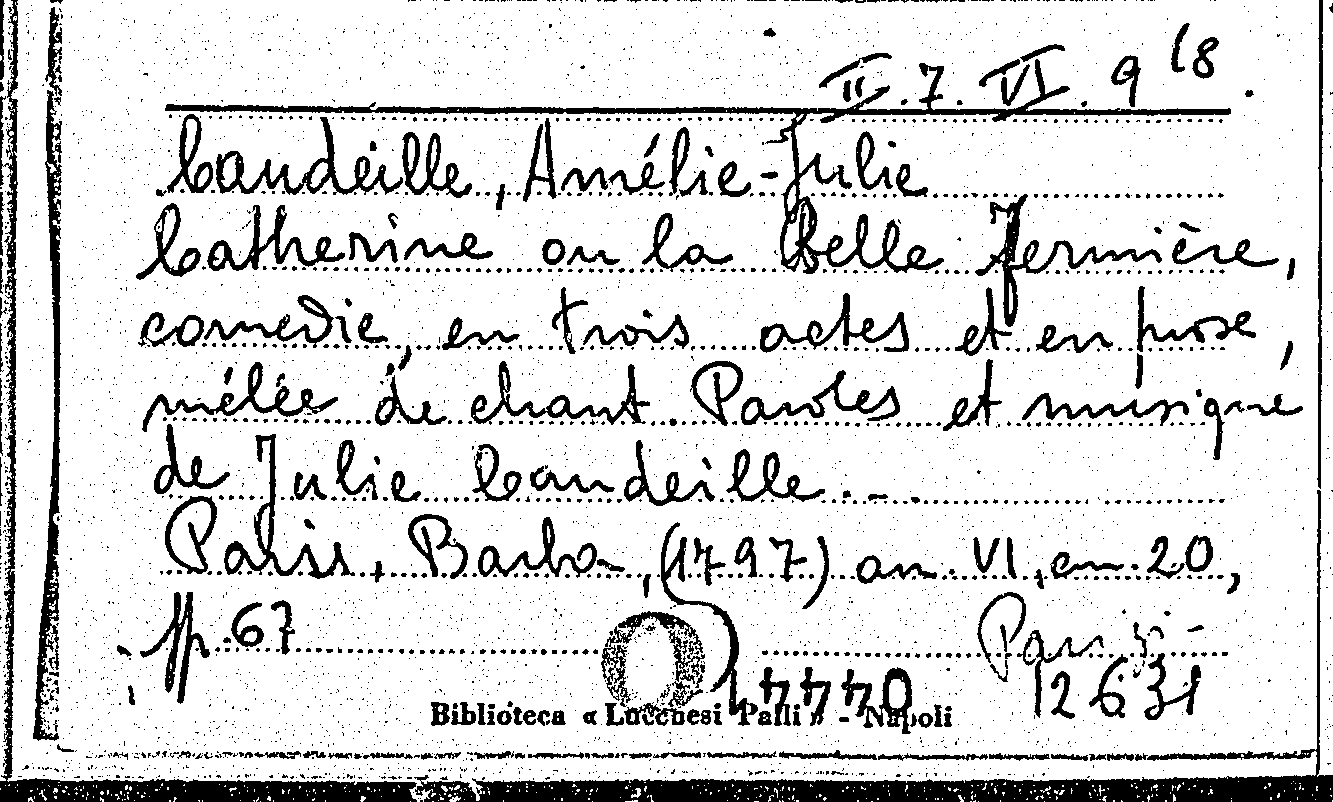 II. 7. VI. 9 (8.
Candeille, Amélie-Julie
Catherine ou la Belle Fermière,
comedie, en trois actes et en prose,
mêlée de chant. Paroles et musique
de Julie Candeille...
Paris, Barba, (1797) an. VI, en. 20,
pp. 67
12631
Biblioteca « Lucchesi Palli » - Napoli